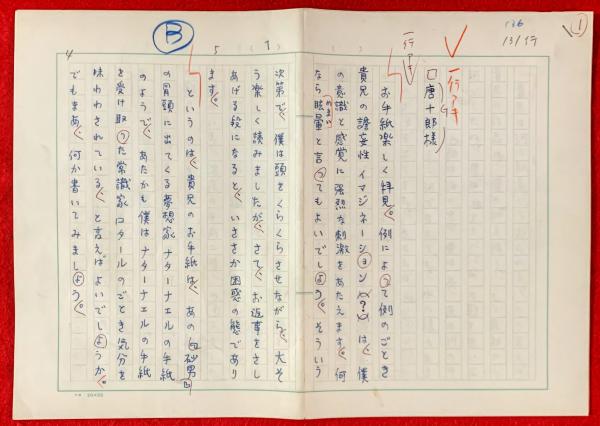 ①
136
13/行
一行アキ
一行アキ
唐十郎様
お手紙楽しく拝見。例によって例のごとき
貴兄の譫妄性イマジネーション(?)は、僕
の意識と感覚に強烈な刺激をあたえます。何
なら眩暈と言ってもよいでしょう。そういう
めまい
次第で、僕は頭をくらくらさせながら、大そ
う楽しく読みましたが、さて、お返事をさし
あげる段になると、いささか困惑の態であり
ます。
というのは、貴兄のお手紙は、あの『砂男』
の冒頭に出てくる夢想家ナターナエルの手紙
のようで、あたかも僕はナターナエルの手紙
を受け取った常識家ロタールのごとき気分を
味わわされている、と言えばよいでしょうか。
でもまあ、何か書いてみましょう。
B
5
4
20×20